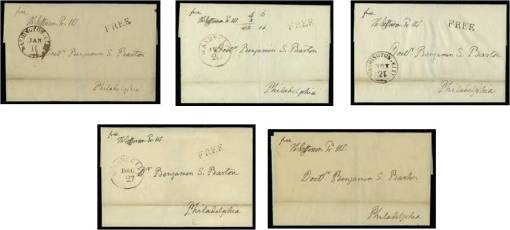 free
Th Jefferson Pr. US.
FREE
WASHINGTON CITY
JAN
11
Doct.r Benjamin S. Barton
Philadelphia
Th Jefferson Pr. US.
FREE
Doct.r Benjamin S. Barton
Philadelphia
free
Th Jefferson Pr. US.
FREE
WASHINGTON CITY
21
Doct.r Benjamin S. Barton
Philadelphia
free
Th Jefferson Pr. US.
FREE
DEC
27
Dr. Benjamin S. Barton
Philadelphia
free
Th Jefferson Pr. US.
Doct.r Benjamin S. Barton
Philadelphia